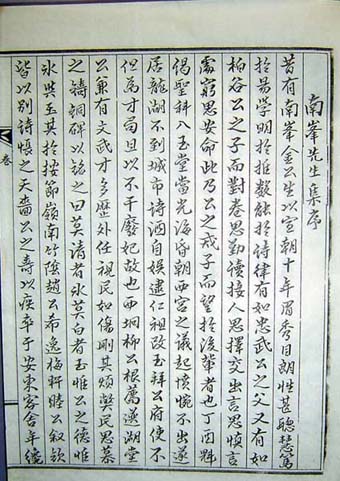 南峯先生集序
昔有南峯金公生以宣朝十年眉秀目朗性甚聰慧篤
於易學明於推數能於詩律有如忠武公之父又有如
柏谷公之子而對卷思勤讀接人思擇交出言思慎言
處窮思安命此乃公之戒子而望於後輩者也丁酉魁
謁聖科入玉堂當光海昏朝西宮之議起憤惋不出遂
居龍湖不到城市詩酒自娛逮仁祖改玉拜公府使不
但爲才局且以不干廢妃故也西坰柳公根薦選湖堂
公兼有文武才多歷外任視民如傷刪其煩弊民思慕
之詩銅碑以銘之曰莫清者氷莫白者玉惟公之德惟
氷與玉其於按節嶺南竹陰趙公希逸梅軒睦公叙欽
皆以別詩惜之天嗇公之壽以疾卒于安東客舍年纔
卷